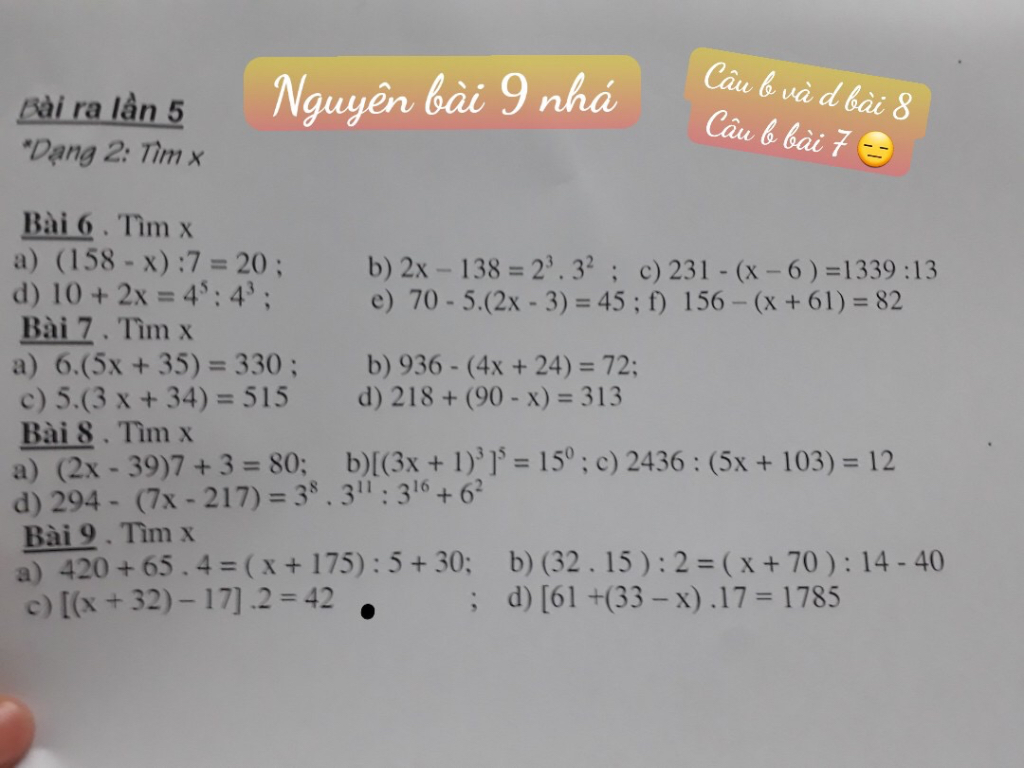 Nguyên bài 9 nhá
Câu b và d bài 8
Câu b bài 7 😑
Bài ra lần 5
*Dạng 2: Tìm x
Bài 6 . Tìm x
a) (158 - x) :7 = 20 ; b) 2x – 138 = 2³ . 3² ; c) 231 - (x – 6 ) =1339 :13
d) 10 + 2x = 4⁵ : 4³ ; e) 70 - 5.(2x - 3) = 45 ; f) 156 – (x + 61) = 82
Bài 7 . Tìm x
a) 6.(5x + 35) = 330 ; b) 936 - (4x + 24) = 72;
c) 5.(3 x + 34) = 515 d) 218 + (90 - x) = 313
Bài 8 . Tìm x
a) (2x - 39)7 + 3 = 80; b)[(3x + 1)³ ]⁵ = 15⁰ ; c) 2436 : (5x + 103) = 12
d) 294 - (7x - 217) = 3⁸ . 3¹¹ : 3¹⁶ + 6²
Bài 9 . Tìm x
a) 420 + 65 . 4 = ( x + 175) : 5 + 30; b) (32 . 15 ) : 2 = ( x + 70 ) : 14 - 40
c) [(x + 32) – 17] .2 = 42 ; d) [61 +(33 – x) .17 = 1785